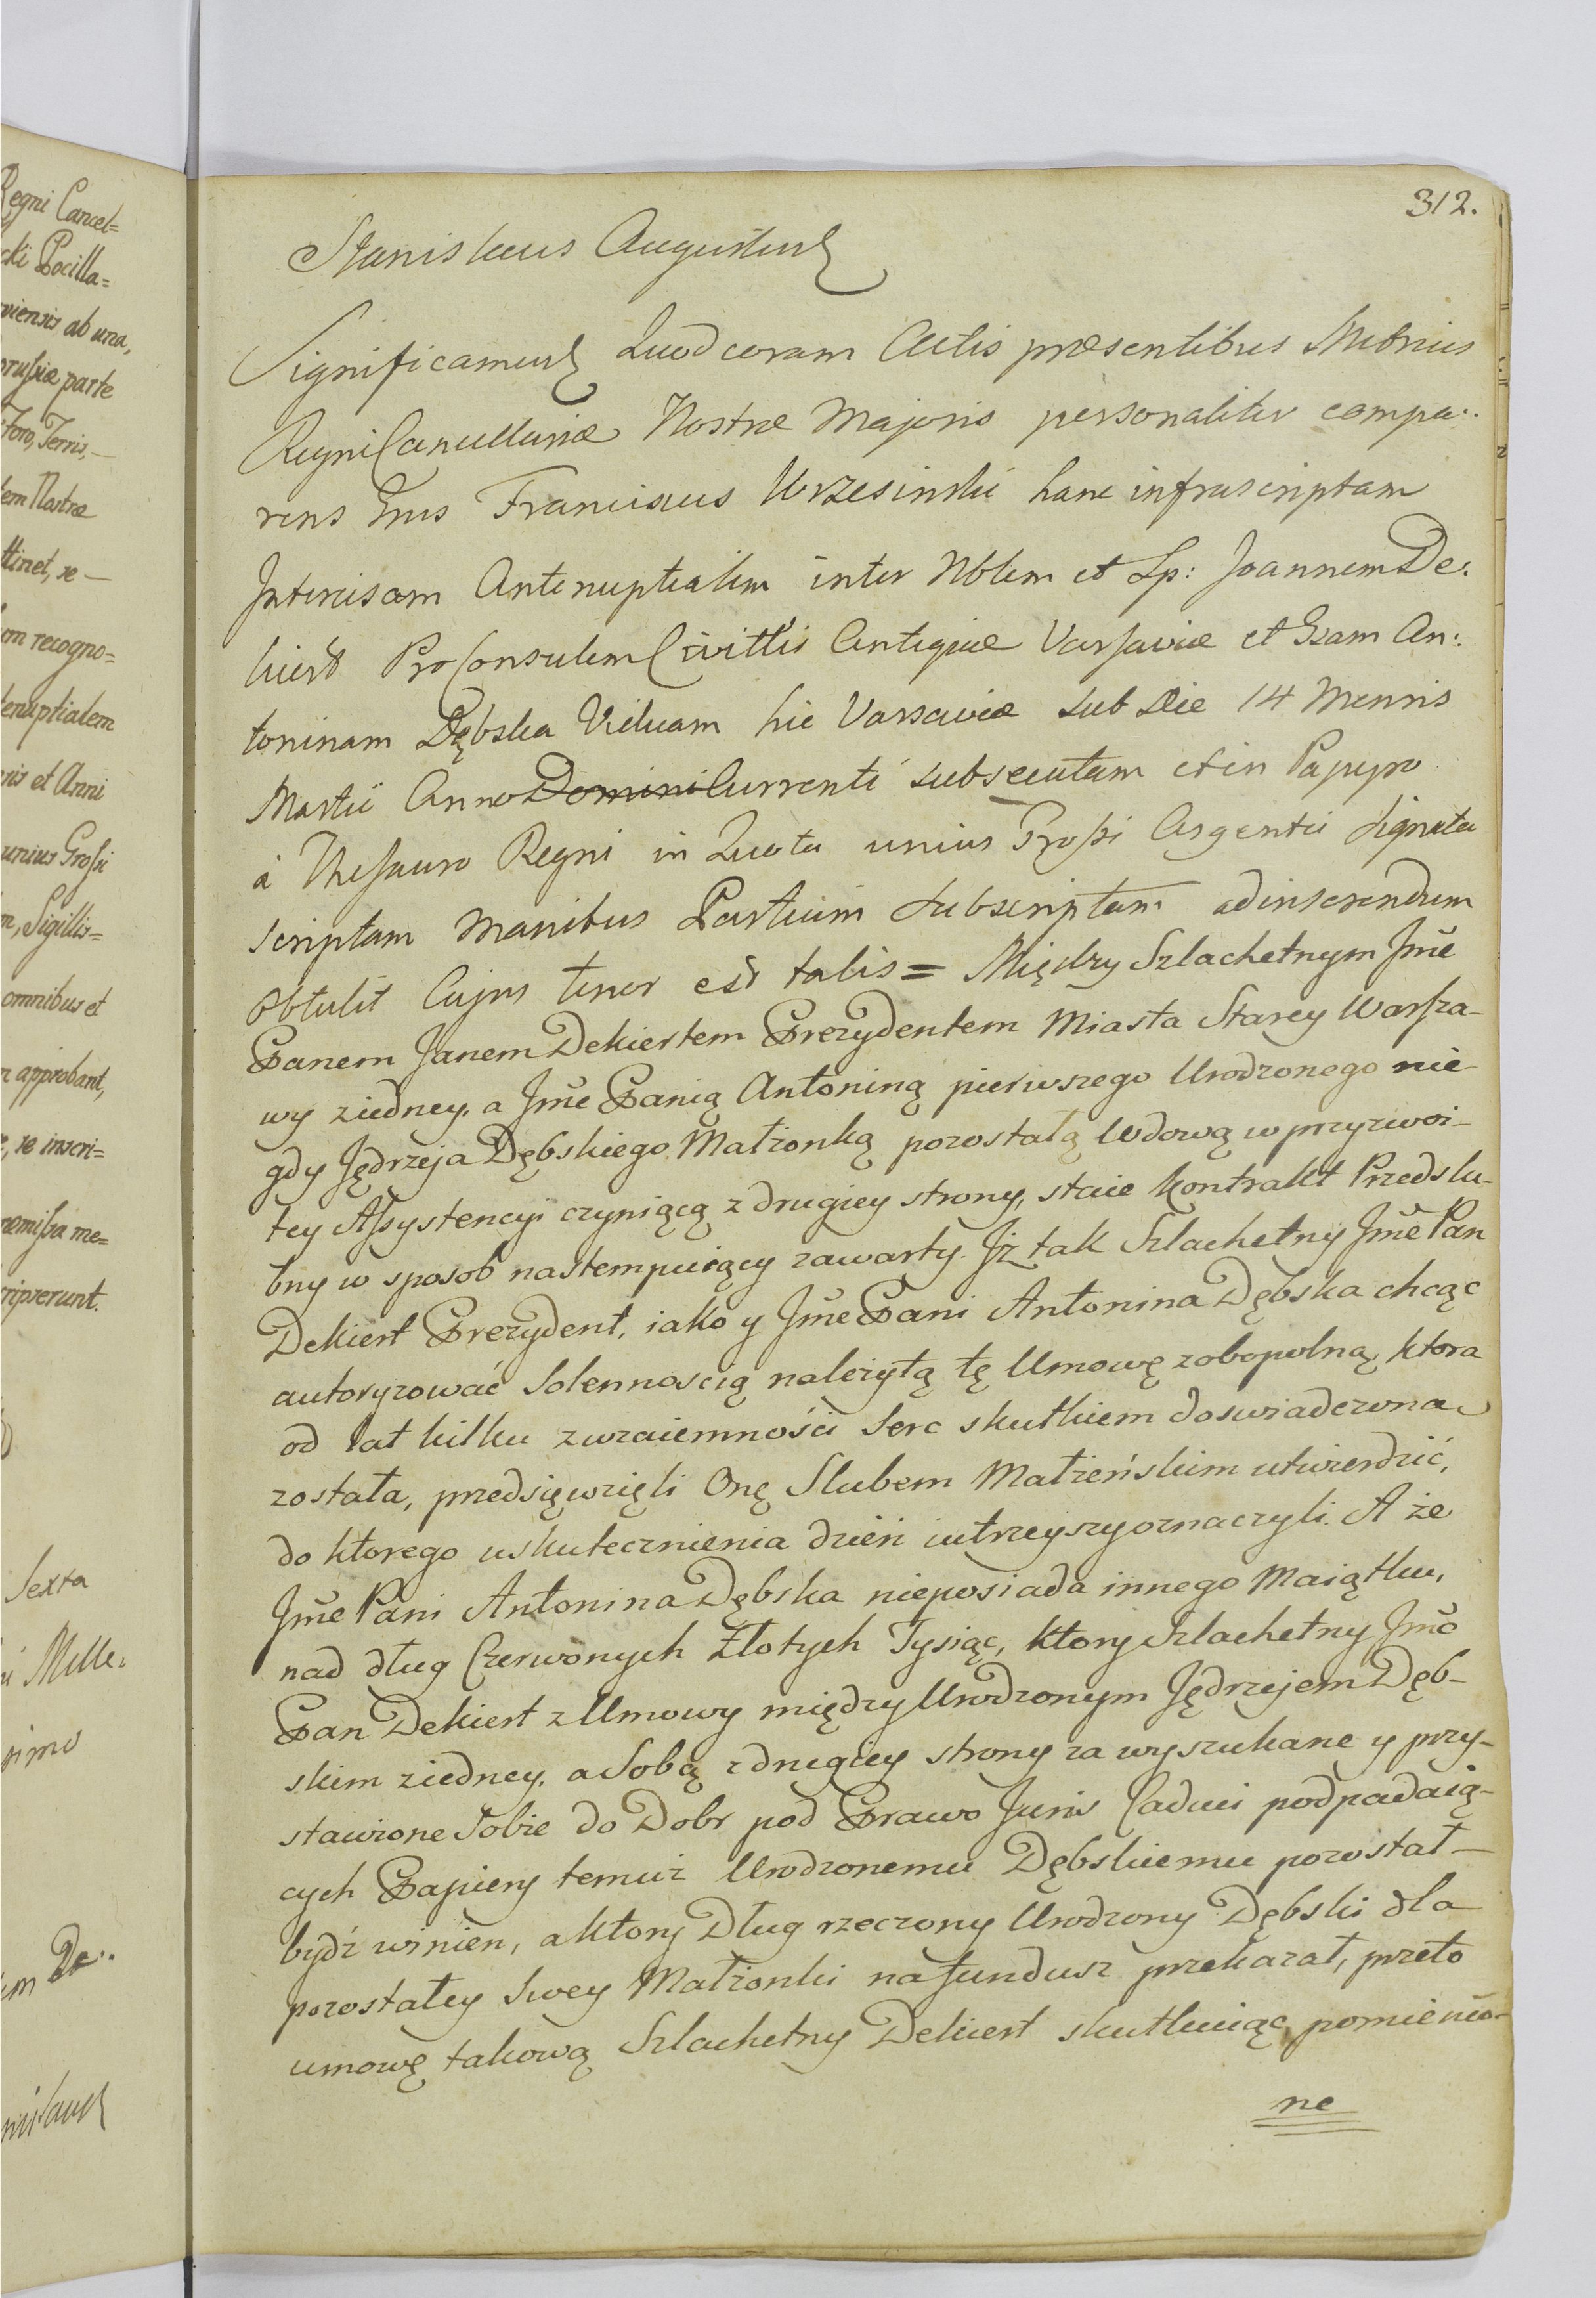 Regni Cancel=
cki Pocilla=
viensis ab una,
prussiæ parte
Foro, Terris,—
tem Nostræ
ttinet, se—
om recogno=
tenuptialem
nsis et Anni
unius Grossi
m, Sigillis=
omnibus et
m approbant,
e, se inscri=
remissa me=
cripserunt.
Sexta
Mille
simo
um De:.
nislaus
312.
Stanislaus Augustus
Significamus Quod coram Actis præsentibus Metrices
Regni Cancellariæ Nostræ Majoris personaliter compa:.
rens Gnus Franciscus Wrzesinski hanc infrascriptam
Intercisam Antenuptialem inter Nblem et Sp: Joannem De:
kiert ProConsulem Civittis Antiquæ Varsaviæ et Gsam An:
toninam Dębska Viduam hic Varsaviæ sub Die 14 Mensis
Martii Anno Domini Currenti subsecutam et in Papyro
à Thesauro Regni in Quota unius Grossi Argentei signata
scriptam Manibus Partium subscriptam ad inserendum
obtulit Cujus tenor est talis = Między Szlachetnym Jmć
Panem Janem Dekiertem Prezydentem Miasta Starey Warsza-
wy ziedney. a Jmć Panią Antoniną pierwszego Urodzonego nie-
gdy Jędrzeja Dębskiego Małżonką pozostałą Wdową w przyzwoi-
tey Assystencyi czyniącą z drugiey strony, staie kontrakt Przedslu-
bny w sposob nastempuiący zawarty. Jż tak Szlachetny Jmć Pan
Dekiert Prezydent, iako y Jmć Pani Antonina Dębska chcąc
autoryzować Solennoscią należytą tę Umowę zobopolną, ktora
od lat kilku zwzaiemności Serc skutkiem doswiadczona
została, przedsięwzięli Onę Slubem Małżeńskim utwierdzić,
do ktorego uskutecznienia dzień iutrzeyszy oznaczyli. A że
Jmć Pani Antonina Dębska nieposiada innego Maiątku,
nad dług Czerwonych Złotych Tysiąc, ktory Szlachetny Jmć
Pan Dekiert z Umowy między Urodzonym Jędrzejem Dęb-
skim ziedney. a Sobą z drugiey strony za wyszukane y przy-
stawione Sobie do Dobr pod Prawo Juris Caduci podpadaią-
cych Papiery temuż Urodzonemu Dębskiemu pozostał—
bydź winien, a ktory Dług rzeczony Urodzony Dębski dla
pozostałey Swey Małżonki na fundusz przekazał, przeto
umowę takową Szlachetny Dekiert skutkuiąc, pomienio-
ne